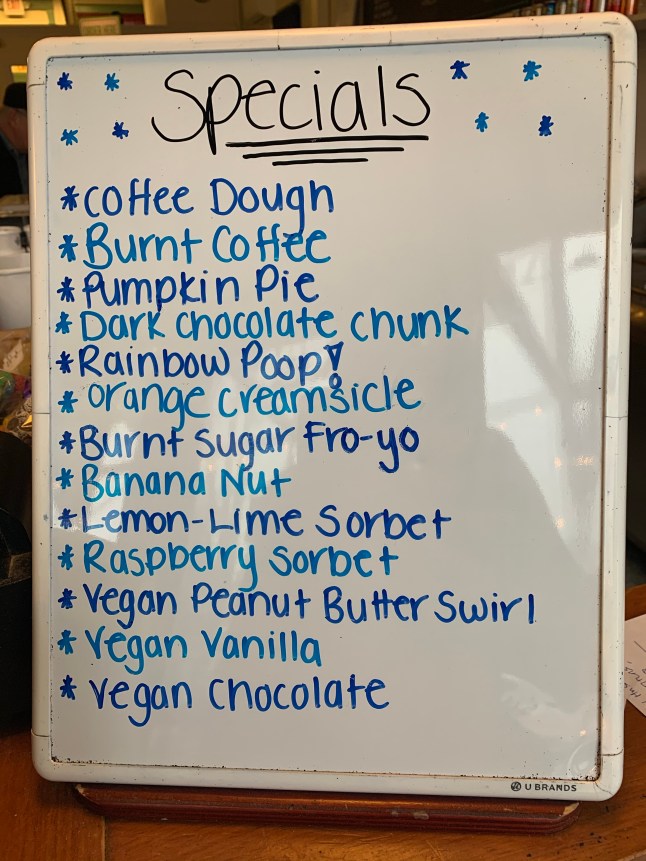 Specials
*Coffee Dough
*Burnt Coffee
*Pumpkin Pie
*Dark chocolate chunk
*Rainbow Poop!
*orange creamsicle
*Burnt sugar Fro-yo
*Banana Nut
*Lemon-Lime Sorbet
*Raspberry sorbet
*Vegan Peanut Butter Swirl
*Vegan Vanilla
*Vegan Chocolate
U BRANDS